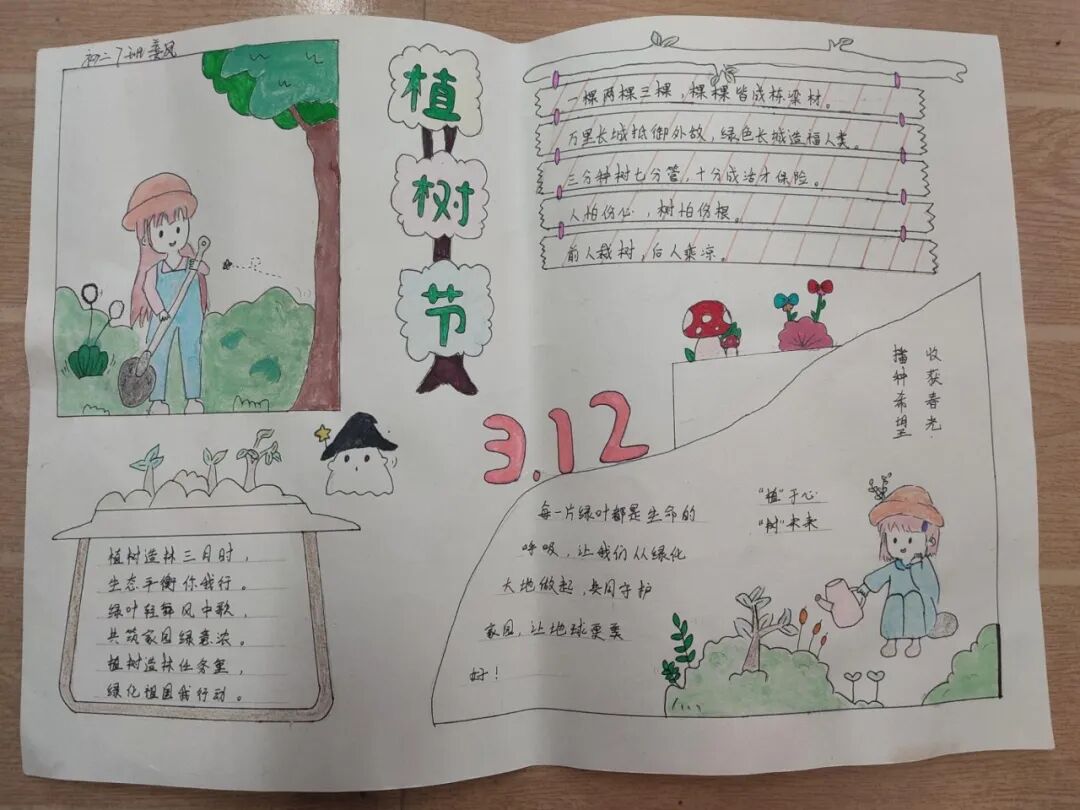 初二7班 姜风
植
树
节
一棵两棵三棵，棵棵皆成栋梁材。
万里长城抵御外敌，绿色长城造福人类。
三分种树七分管，十分成活才保险。
人怕伤心，树怕伤根。
前人栽树，后人乘凉。
3.12
收获春光.
播种希望
植树造林三月时，
生态平衡你我行。
绿叶轻舞风中歌，
共筑家园绿意浓。
植树造林任务重，
绿化祖国我行动。
每一片绿叶都是生命的
呼吸，让我们从绿化
大地做起，共同守护
家园，让地球更美
好！
"植"于心
"树"未来